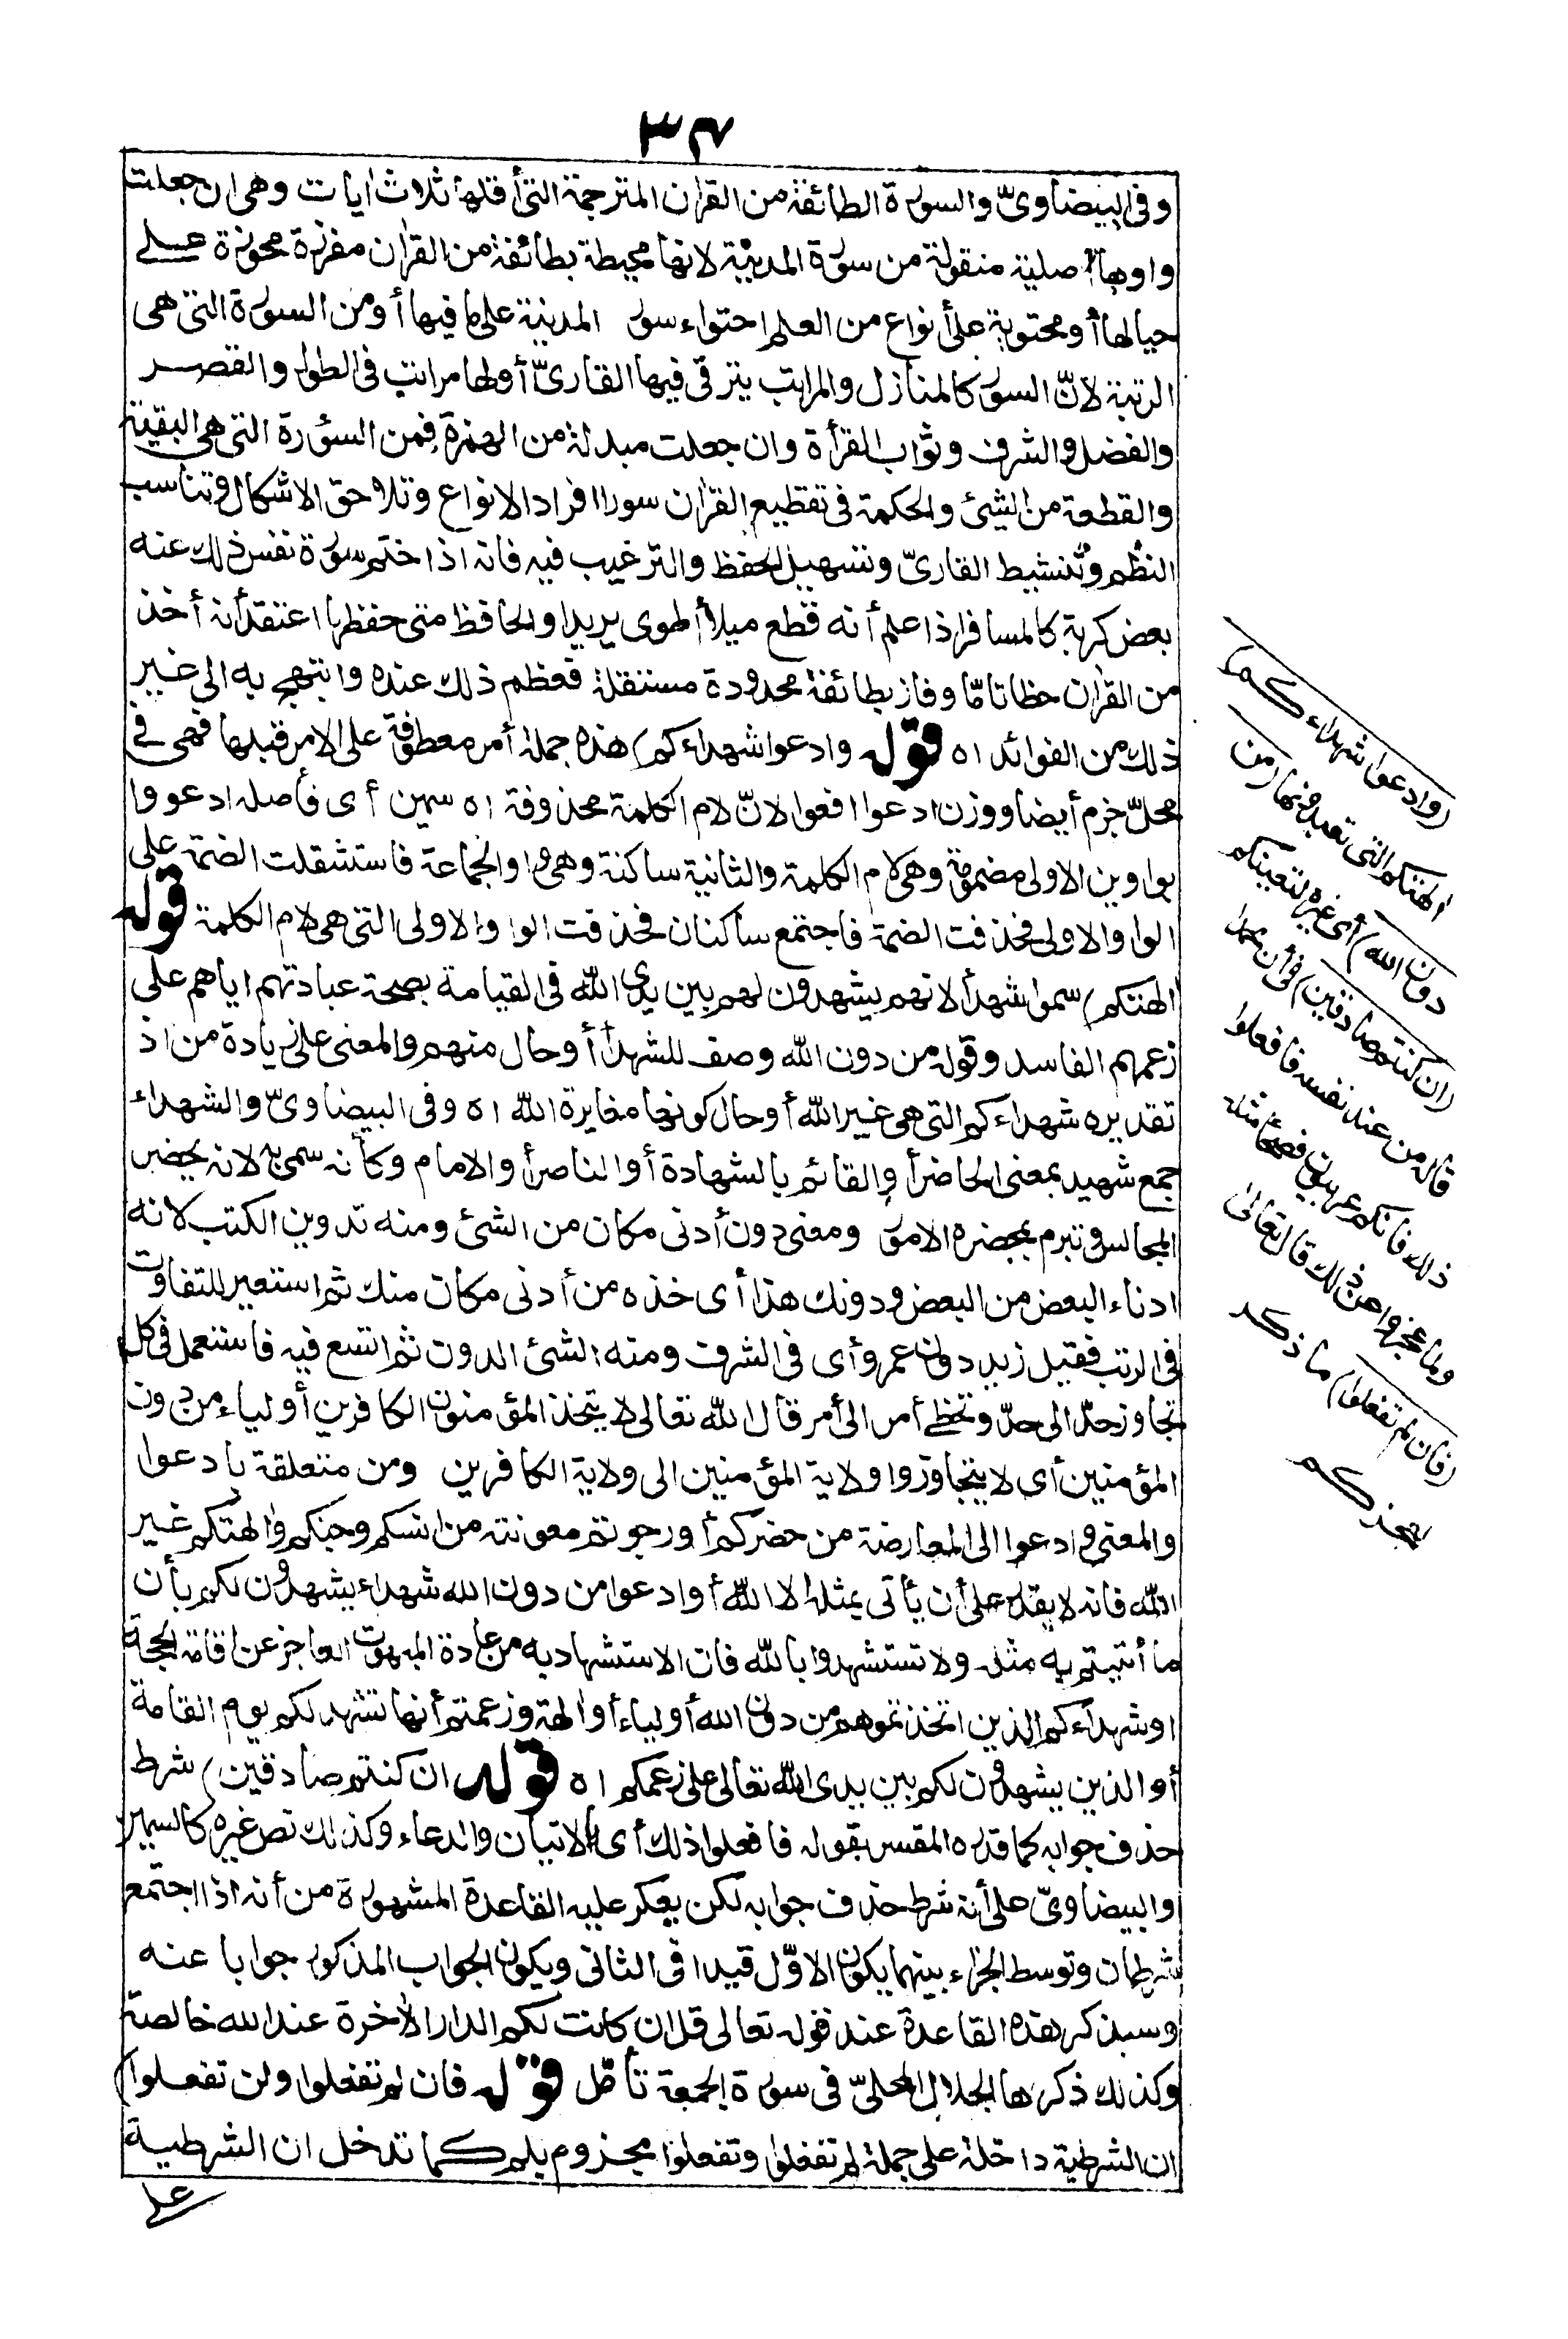 ٣٤
وفى البيضاوىّ والسورة الطائفة من القران المترجمة التى أقلها ثلاث ايات وهى ان جعلت
واوها أصلية منقولة من سورة المدينة لانها محيطة بطائفة من القران مفرزة محوزة على
حيالها أو محتوية على أنواع من العلم احتواء سور المدينة على ما فيها أو من السورة التى هى
الرتبة لانّ السور كالمنازل والمراتب يترقى فيها القارىّ أو لها مراتب فى الطول والقصر
والفضل والشرف وثواب القرأة وان جعلت مبدلة من الهمزة فمن السؤرة التى هى البقية
والقطعة من الشئ والحكمة فى تقطيع القران سورا افراد الانواع وتلاحق الاشكال وتناسب
النظم وتنشيط القارىّ وتسهيل الحفظ والترغيب فيه فانه اذا ختم سورة نفس ذلك عنه
بعض كربة كالمسافر اذا علم أنه قطع ميلا أو طوى بريدا والحافظ متى حفظها اعتقد أنه أخذ
من القران حظا تامّا وفاز بطائفة محدودة مستقلة فعظم ذلك عنده وابتهج به الى غير
ذلك من الفوائد اه قوله وادعوا شهداءكم) هذه جملة أمر معطوفة على الامر قبلها فهى فى
محلّ جزم أيضا ووزن ادعوا افعوا لانّ لام الكلمة محذوفة اه سمين أى فأصله ادعووا
بواوين الاولى مضمومة وهى لام الكلمة والثانية ساكنة وهى واو الجماعة فاستشقلت الضمة على
الواو الاولى فحذفت الضمة فاجتمع ساكنان فحذفت الواو الاولى التى هى لام الكلمة قوله
الهتكم) سموا شهدأ لانهم يشهدون لهم بين يدى الله فى القيامة بصحة عبادتهم اياهم على
زعمهم الفاسد وقوله من دون الله وصف للشهدأ أو حال منهم والمعنى على زيادة من اذ
تقديره شهداءكم التى هى غير الله أو حال كونها مغايرة الله اه وفى البيضاوىّ والشهداء
جمع شهيد بمعنى الحاضر أو القائم بالشهادة أو الناصر أو الامام وكأنه سمى به لانه يحضر
المجالس وتبرم بحضره الامور ومعنى دون أدنى مكان من الشئ ومنه تدوين الكتب لانه
ادناء البعض من البعض ودونك هذا أى خذه من أدنى مكان منك ثم استعير للتفاوت
فى الرتب فقيل زيد دون عمرو أى فى الشرف ومنه الشئ الدون ثم اتسع فيه فاستعمل فى كل
تجاوز حدّ الى حدّ وتخطى أمر الى أمر قال الله تعالى لا يتخذ المؤمنون الكافرين أولياء من دون
المؤمنين أى لا يتجاوزوا ولاية المؤمنين الى ولاية الكافرين ومن متعلقة بادعوا
والمعنى وادعوا الى المعارضة من حضركم أو رجوتم معونته من انسكم وجنكم والهتكم غير
الله فانه لا يقدر على أن يأتى بمثله الا الله أو ادعوا من دون الله شهداء يشهدون لكم بأن
ما أتيتم به مثله ولا تستشهدوا بالله فان الاستشهاد به من عادة المبهوت العاجز عن اقامة الحجة
اوشهدآءكم الذين اتخذتموهم من دون الله أولياء أو الهة وزعمتم أنها تشهد لكم يوم القامة
أو الذين يشهدون لكم بين يدى الله تعالى على زعمكم اه قوله ان كنتم صادقين) شرط
حذف جوابه كما قدره المفسر بقوله فافعلوا ذلك أى الاتيان والدعاء وكذلك نص غيره كالسمين
والبيضاوىّ على أنه شرط حذف جوابه لكن يعكر عليه القاعدة المشهورة من أنه اذا اجتمع
شرطان وتوسط الجزاء بينهما يكون الاوّل قيدا فى الثانى ويكون الجواب المذكور جوابا عنه
وسيذكر هذه القاعدة عند قوله تعالى قل ان كانت لكم الدار الاخرة عند الله خالصة
وكذلك ذكرها الجلال المحلىّ فى سورة الجمعة تأمّل قوله فان لم تفعلوا ولن تفعلوا)
ان الشرطية داخلة على جملة لم تفعلوا وتفعلوا مجزوم بلم كما تدخل ان الشرطية
على
(وادعوا شهداءكم)
الهتكم التى تعبدونها (من
دون الله) أى غيره لتعينكم
(ان كنتم صادقين) فى أن محمدا
قاله من عند نفسه فافعلوا
ذلك فانكم عربيون فصحاء مثله
ولما عجزوا عن ذلك قال تعالى
(فان لم تفعلوا) ما ذكر
لعجزكم